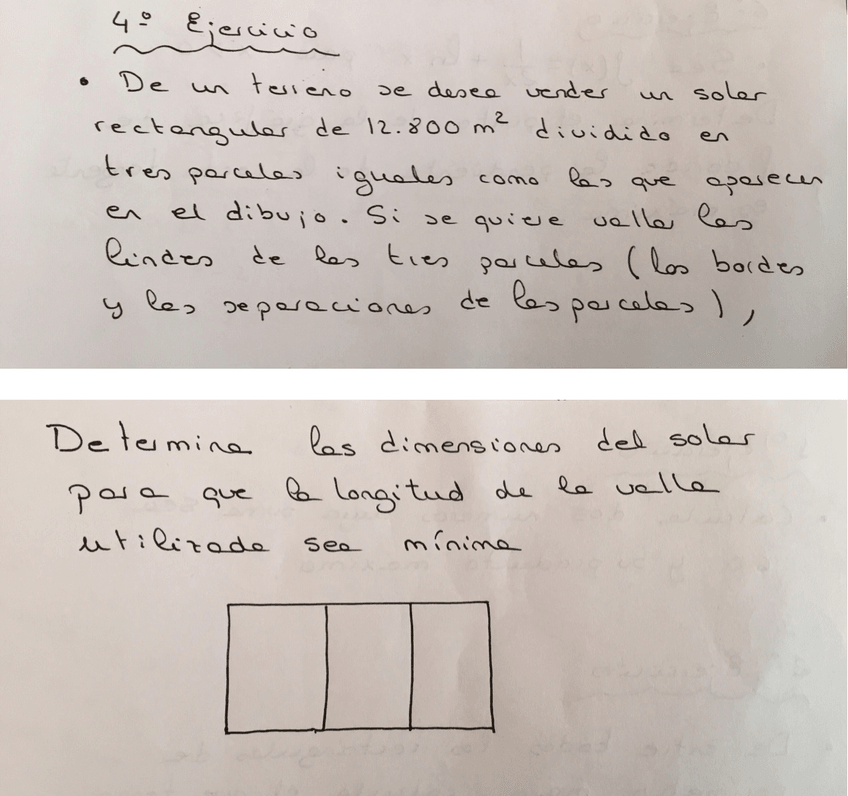 4º Ejercicio
• De un terreno se desea vender un solar
rectangular de 12.800 m² dividido en
tres parcelas iguales como las que aparecen
en el dibujo. Si se quiere valla las
lindes de las tres parcelas (los bordes
y las separaciones de las parcelas),
Determina las dimensiones del solar
para que la longitud de la valla
utilizada sea mínima